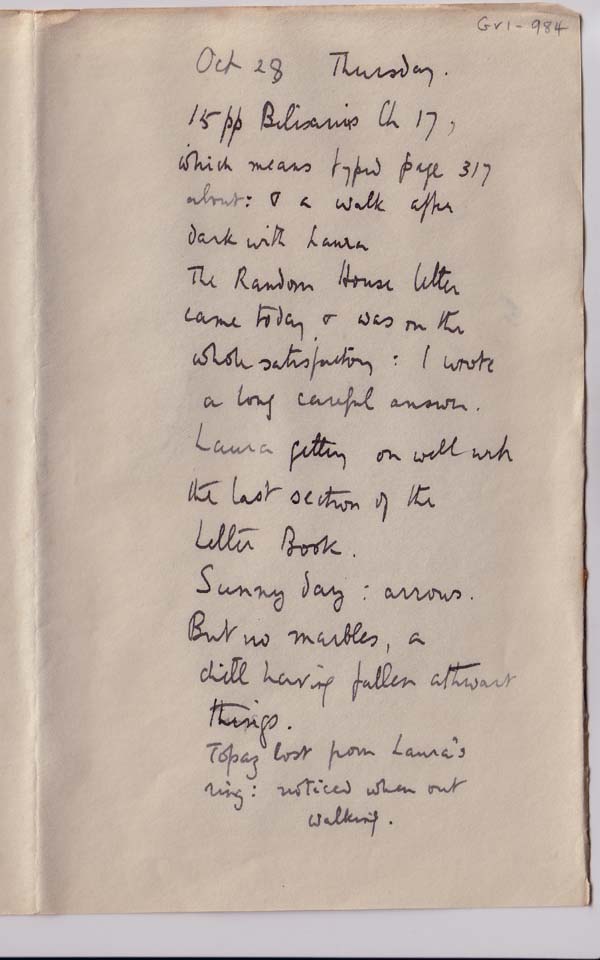 Gv1-984
Oct 28 Thursday.
15 pp Belisarius Ch 17,
which means typed page 317
about: & a walk after
dark with Laura
The Random House letter
came today, & was on the
whole satisfactory: I wrote
a long careful answer.
Laura getting on well with
the last section of the
Letter Book.
Sunny day: arrows.
But no marbles, a
chill having fallen athwart
things.
Topaz lost from Laura's
ring: noticed when out
walking.